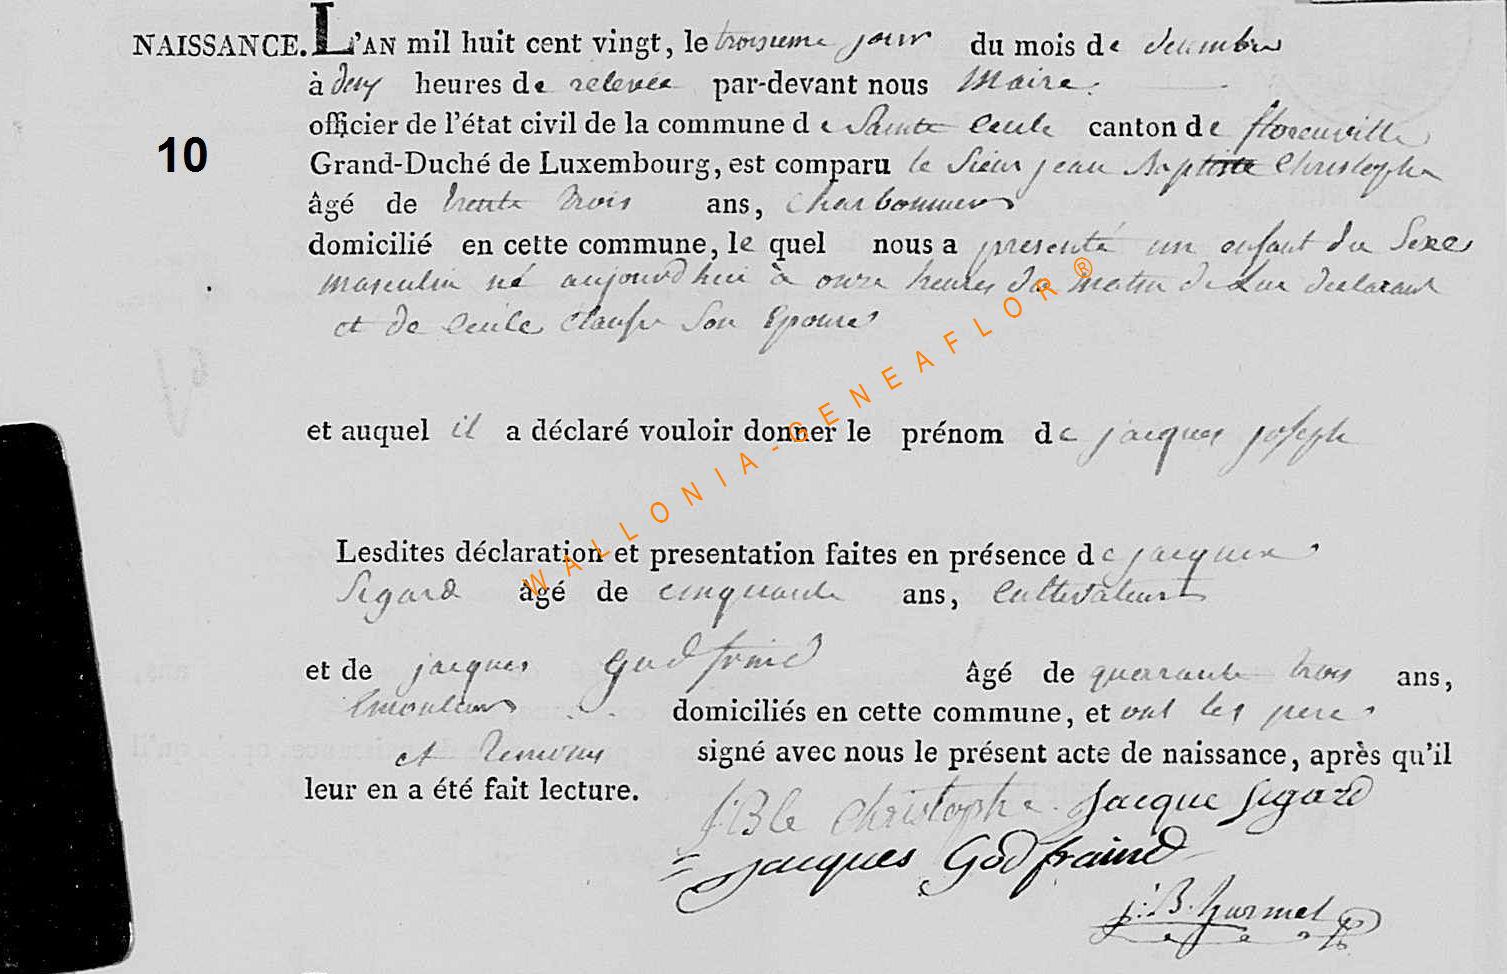 NAISSANCE. L'AN mil huit cent vingt, le troisieme jour du mois de decembre
à deux heures de relevée par-devant nous Maire.
officier de l'état civil de la commune de Sainte Cecile canton de florenville
10
Grand-Duché de Luxembourg, est comparu le Sieur jean Baptiste Christophe
âgé de trente trois ans, charbonnier
domicilié en cette commune, le quel nous a presenté un enfant du Sexe
masculin né aujourd'hui à onze heures du matin de Lui declarant
et de Cecile Son Epouse
WALLONIA-GENEAFLOR®
et auquel il a déclaré vouloir donner le prénom de jacques joseph
Lesdites déclaration et presentation faites en présence de jacques
Sigard âgé de cinquante ans, Cultivateur
et de jacques Godfrind âgé de quarrante trois ans,
domiciliés en cette commune, et ont les pere
et temoins signé avec nous le présent acte de naissance, après qu'il
leur en a été fait lecture.
J:Bte Christophe. Jacque Sigard
Jacques Godfraind
J:B. Hurmel